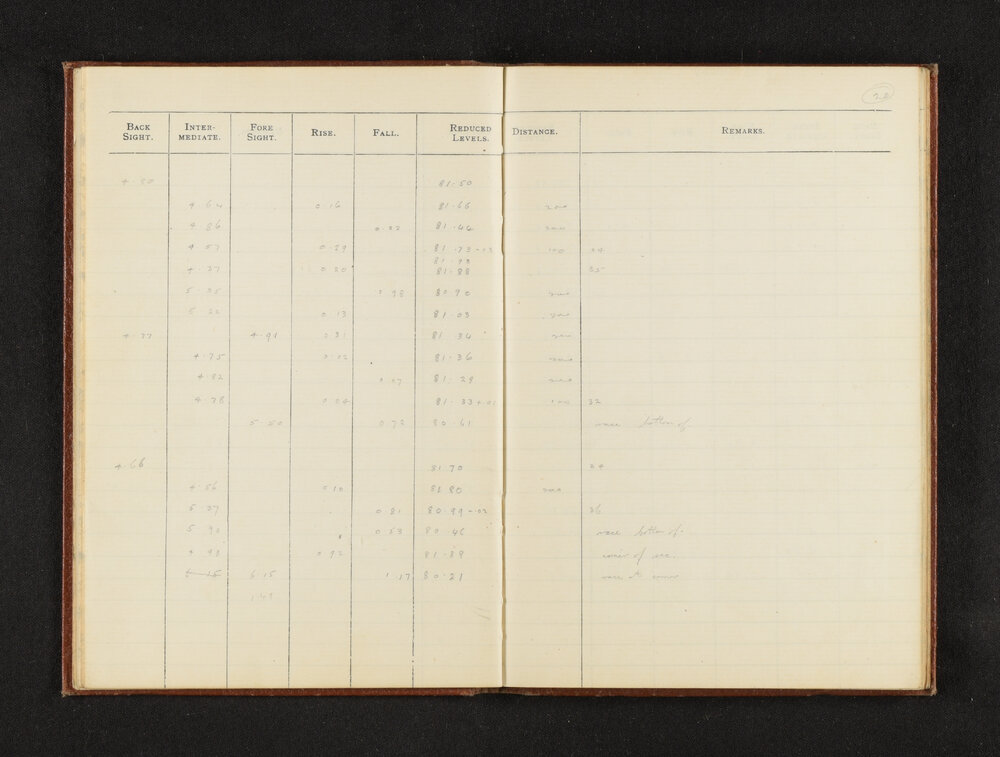 22
BACK SIGHT. INTER-MEDIATE. FORE SIGHT. RISE. FALL. REDUCED LEVELS. DISTANCE. REMARKS.
4.50 81.50
4.64 0.16 81.66 200
4.86 0.22 81.44 200
4.57 0.29 81.73 100 24
81.93
4.37 0.20 81.88 35
5.35 0.98 80.90 200
5.22 0.13 81.03 200
4.77 4.91 0.31 81.34 200
4.75 0.02 81.36 200
4.82 0.07 81.29 200
4.78 0.04 81.33 100 32
5.50 0.72 80.61 race bottom of
4.66 81.70 24
4.56 0.10 81.80 200
5.37 0.81 80.99-02 36
5.90 0.53 80.46 race bottom of.
0.92 corner of sec.
6.15 1.17 80.21 race at corner
1.49